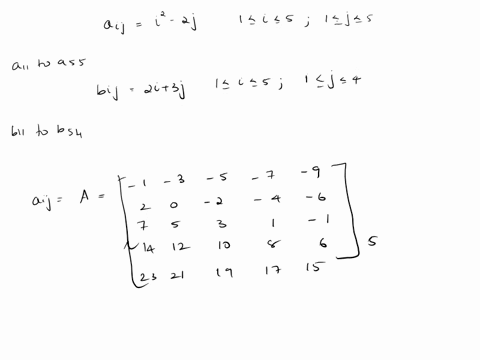 aij = i² - 2j 1 ≤ i ≤ 5 ; 1 ≤ j ≤ 5
a11 to a55
bij = 2i+3j 1 ≤ i ≤ 5 ; 1 ≤ j ≤ 4
b11 to b54
aij = A = [ -1 -3 -5 -7 -9
2 0 -2 -4 -6
7 5 3 1 -1
14 12 10 8 6
23 21 19 17 15 ] 5